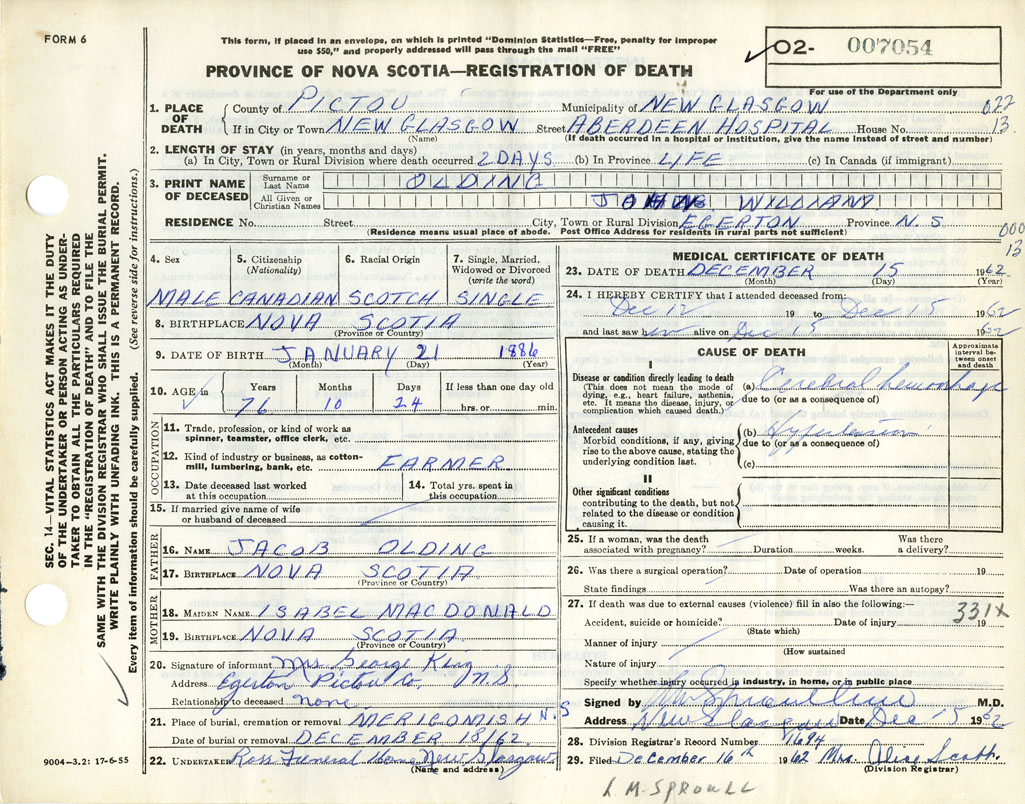 FORM 6
This form, if placed in an envelope, on which is printed "Dominion Statistics—Free, penalty for improper
use $50," and properly addressed will pass through the mail "FREE"
02- 007054
For use of the Department only
PROVINCE OF NOVA SCOTIA—REGISTRATION OF DEATH
1. PLACE OF DEATH County of PICTOU Municipality of NEW GLASGOW 022
If in City or Town NEW GLASGOW Street ABERDEEN HOSPITAL House No. 13.
(Name) (If death occurred in a hospital or institution, give the name instead of street and number)
2. LENGTH OF STAY (in years, months and days)
(a) In City, Town or Rural Division where death occurred 2 DAYS (b) In Province LIFE (c) In Canada (if immigrant)
3. PRINT NAME OF DECEASED Surname or Last Name OLDING
All Given or Christian Names JOHN WILLIAM
RESIDENCE No. Street City, Town or Rural Division EGERTON Province N.S
(Residence means usual place of abode. Post Office Address for residents in rural parts not sufficient)
000
13
4. Sex 5. Citizenship (Nationality) 6. Racial Origin 7. Single, Married, Widowed or Divorced (write the word)
MALE CANADIAN SCOTCH SINGLE
8. BIRTHPLACE NOVA SCOTIA
(Province or Country)
9. DATE OF BIRTH JANUARY 21 1886
(Month) (Day) (Year)
10. AGE in Years Months Days If less than one day old
76 10 24 hrs. or min.
OCCUPATION
11. Trade, profession, or kind of work as
spinner, teamster, office clerk, etc.
12. Kind of industry or business, as cotton-
mill, lumbering, bank, etc. FARMER
13. Date deceased last worked at this occupation 14. Total yrs. spent in this occupation
15. If married give name of wife
or husband of deceased
FATHER
16. NAME JACOB OLDING
17. BIRTHPLACE NOVA SCOTIA
(Province or Country)
MOTHER
18. MAIDEN NAME ISABEL MACDONALD
19. BIRTHPLACE NOVA SCOTIA
(Province or Country)
20. Signature of informant Mrs George King
Address Egerton Pictou Co N.S
Relationship to deceased none
21. Place of burial, cremation or removal MERIGOMISH N.S
Date of burial or removal DECEMBER 18/62
22. UNDERTAKER Ross Funeral Home New Glasgow
(Name and address)
MEDICAL CERTIFICATE OF DEATH
23. DATE OF DEATH DECEMBER 15 1962
(Month) (Day) (Year)
24. I HEREBY CERTIFY that I attended deceased from:
Dec 12 19 to Dec 15 1962
and last saw him alive on Dec 15 1962
CAUSE OF DEATH
Approximate interval between onset and death
I
Disease or condition directly leading to death
(This does not mean the mode of
dying, e.g., heart failure, asthenia,
etc. It means the disease, injury, or
complication which caused death.)
(a) Cerebral hemorrhage
due to (or as a consequence of)
Antecedent causes
Morbid conditions, if any, giving
rise to the above cause, stating the
underlying condition last.
(b) Hypertension
due to (or as a consequence of)
(c)
II
Other significant conditions
contributing to the death, but not
related to the disease or condition
causing it.
25. If a woman, was the death Was there
associated with pregnancy? Duration weeks. a delivery?
26. Was there a surgical operation? Date of operation 19
State findings Was there an autopsy?
27. If death was due to external causes (violence) fill in also the following:— 331X
Accident, suicide or homicide? Date of injury 19
(State which)
Manner of injury
(How sustained
Nature of injury
Specify whether injury occurred in industry, in home, or in public place
Signed by M.D.
Address New Glasgow Date Dec 15 1962
28. Division Registrar's Record Number 1694
29. Filed December 16th 1962 Mrs. Alice Scott.
(Division Registrar)
L M. SPROULL
SEC. 14—VITAL STATISTICS ACT MAKES IT THE DUTY
OF THE UNDERTAKER OR PERSON ACTING AS UNDER-
TAKER TO OBTAIN ALL THE PARTICULARS REQUIRED
IN THE "REGISTRATION OF DEATH" AND TO FILE THE
SAME WITH THE DIVISION REGISTRAR WHO SHALL ISSUE THE BURIAL PERMIT.
WRITE PLAINLY WITH UNFADING INK. THIS IS A PERMANENT RECORD.
Every item of information should be carefully supplied. (See reverse side for instructions.)
9004—3.2: 17-6-55